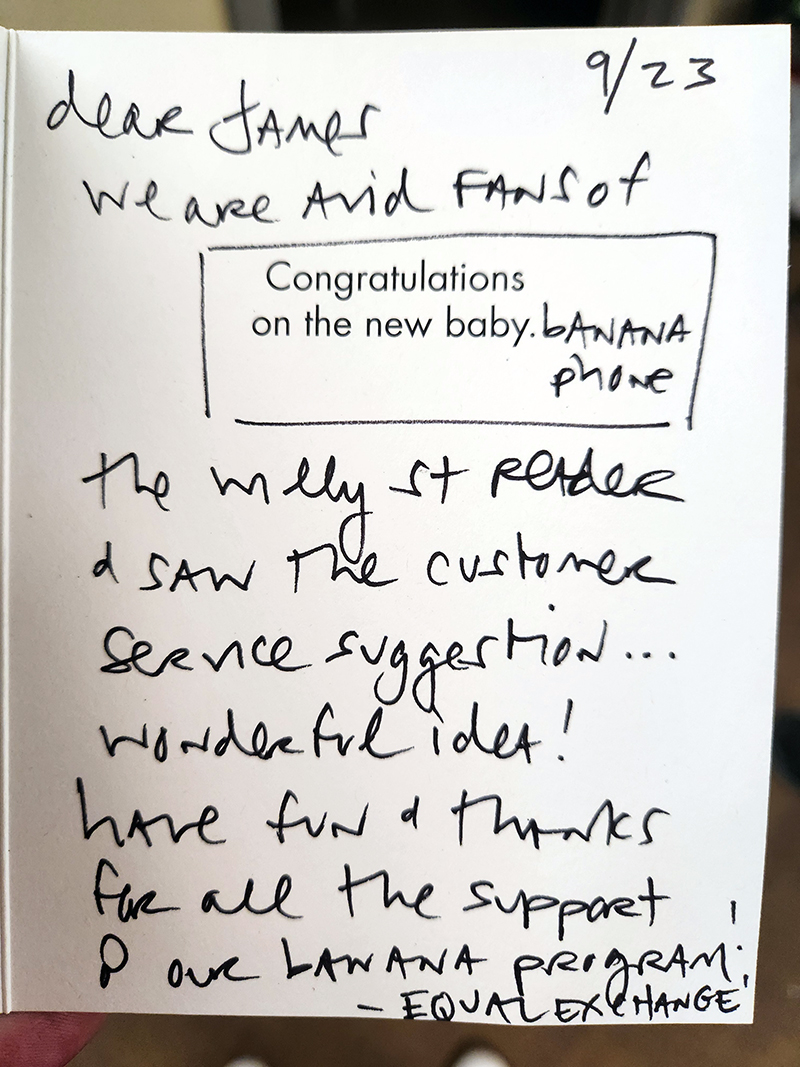 9/23
dear James
we are Avid FANS of
Congratulations
on the new baby. bANANA
phone
the willy st reader
& SAW the customer
service suggestion...
wonderful idea!
have fun & thanks
for all the support
our bANANA program!
- EQUAL EXCHANGE